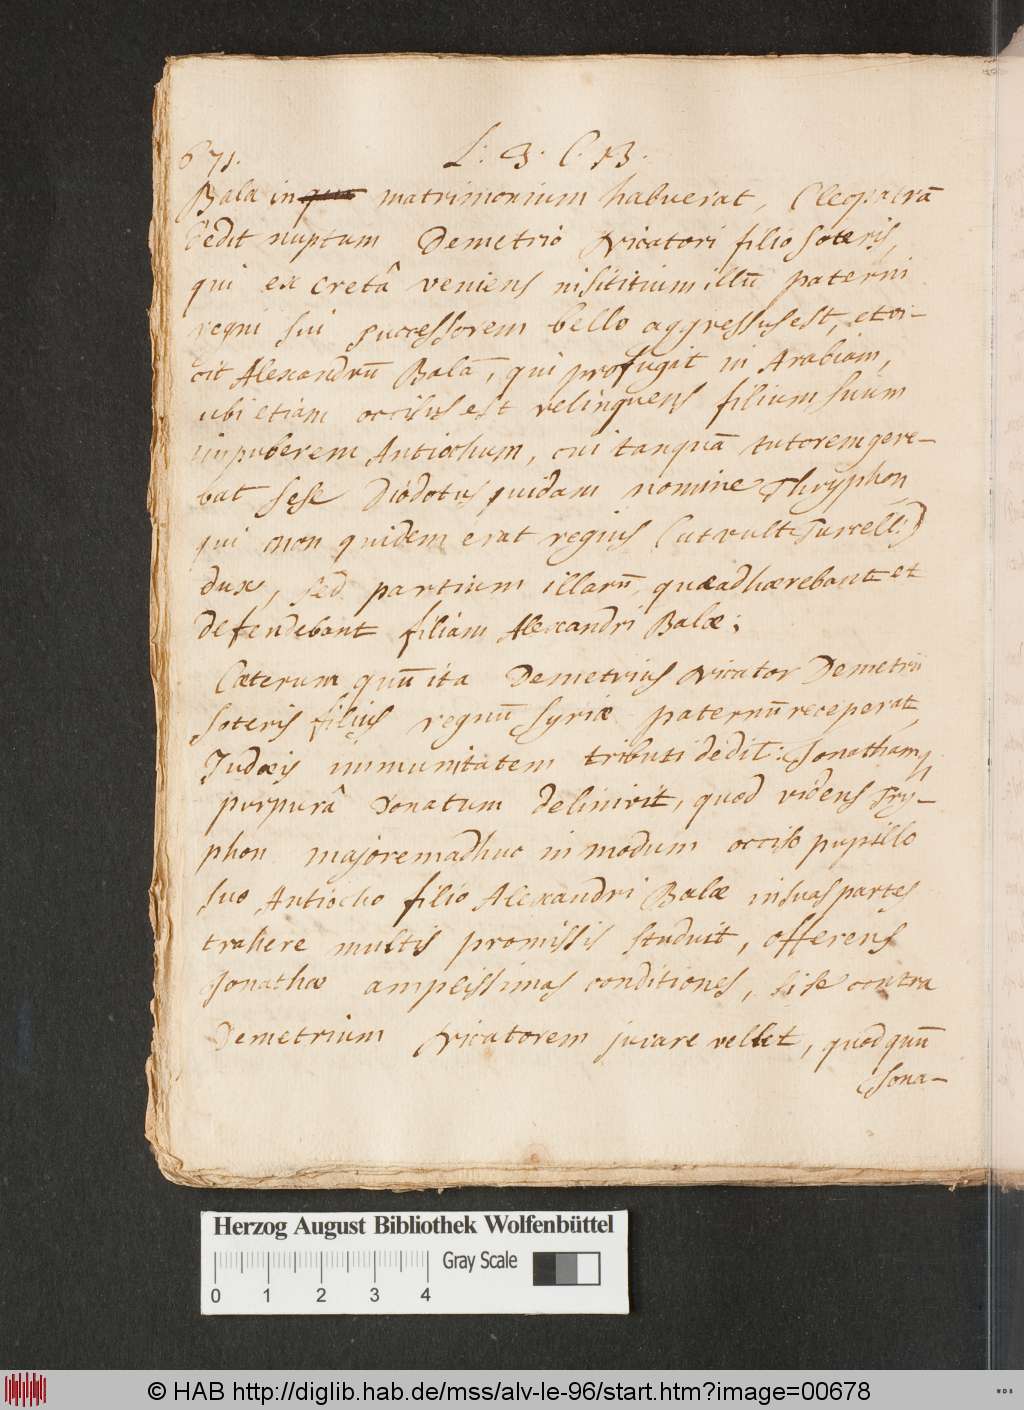 671.
L: 3. C. 13.
Bala in matrimonium habuerat, Cleopatrā
dedit nuptum Demetrio Nicatori filio Soteris,
qui ex Cretâ veniens illū paterni
regni sui successorem bello aggressus est, et vi-
cit Alexandrū Balā, qui profugit in Arabiam,
ubi etiam occisus est relinquens filium suum
impuberem Antiochum, cui tanquā tutorem gere-
bat sese Diodotus quidam nomine Thryphon
qui non quidem erat regius (ut vult Tursell:)
dux, sed partium illarū, quæ adhærebant et
defendebant filium Alexandri Balæ;
Cæterum quū ita Demetrius Nicator Demetrii
Soteris filius regnū Syriæ paternū receperat,
Judæis immunitatem tributi dedit: Jonathamq
purpurâ donatum delinivit, quod videns Try-
phon majorem adhuc in modum occiso pupillo
suo Antiocho filio Alexandri Balæ in suas partes
trahere multis promissis studuit, offerens
Jonathæ amplissimas conditiones, si se contra
Demetrium Nicatorem juvare vellet, quod quū
Jona-
Herzog August Bibliothek Wolfenbüttel
Gray Scale
0 1 2 3 4
© HAB http://diglib.hab.de/mss/alv-le-96/start.htm?image=00678